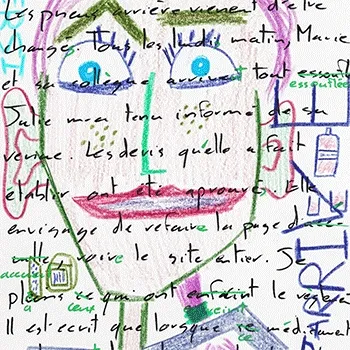 Les pneus arrière viennent d'etre
changé. Tous les lundi matin, Marie
et sa collègue arrivent tout essouflé
essouflées
Julie m'a tenu informé de sa
venue. Les devis quelle a fait
établir ont été aprouvé. Elle
envisage de refaire la page d'acc
ueille, voire le site entier. Se
accueil
plains ce qui ont enfaint le
à ceux enfreint
Il est ecrit que lorsque se
ce
ARRIVE